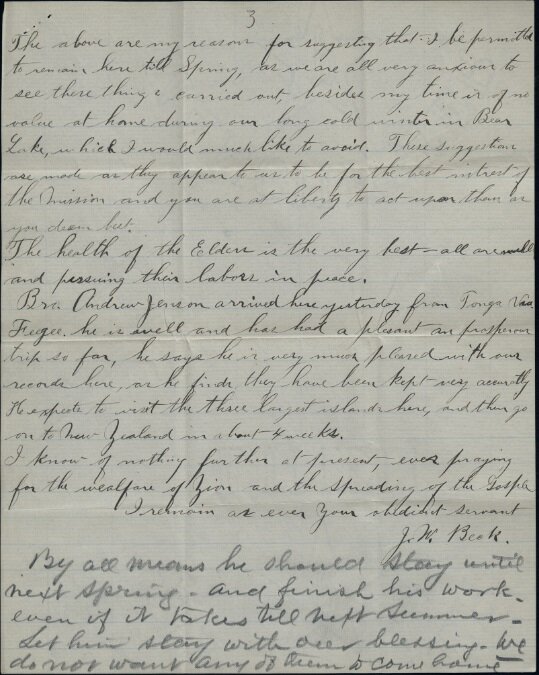 3
The above are my reasons for suggesting that I be permitted
to remain here till Spring, as we are all very anxious to
see these things carried out, besides my time is of no
value at home during our long cold winter in Bear
Lake, which I would much like to avoid. These suggestions
are made as they appear to us to be for the best intrest of
the Mission and you are at liberty to act upon them as
you deem best.
The health of the Elders is the very best – all are well
and persuing their labors in peace.
Bro. Andrew Jenson arrived here yesterday from Tonga via
Feegee. he is well and has had a pleasant an prosperous
trip so far, he says he is very much pleased with our
records here, as he finds they have been kept very accuratly
He expects to visit the three largest islands here, and then go
on to New Zealand in about 4 weeks.
I know of nothing further at present, ever praying
for the wealfare of Zion and the spreading of the Gospel
I remain as ever Your obedient servant
J. W. Beck.
By all means he should stay until
next spring. and finish his work.
even if it takes till next summer.
Let him stay with our blessing. We
do not want any of them to come home